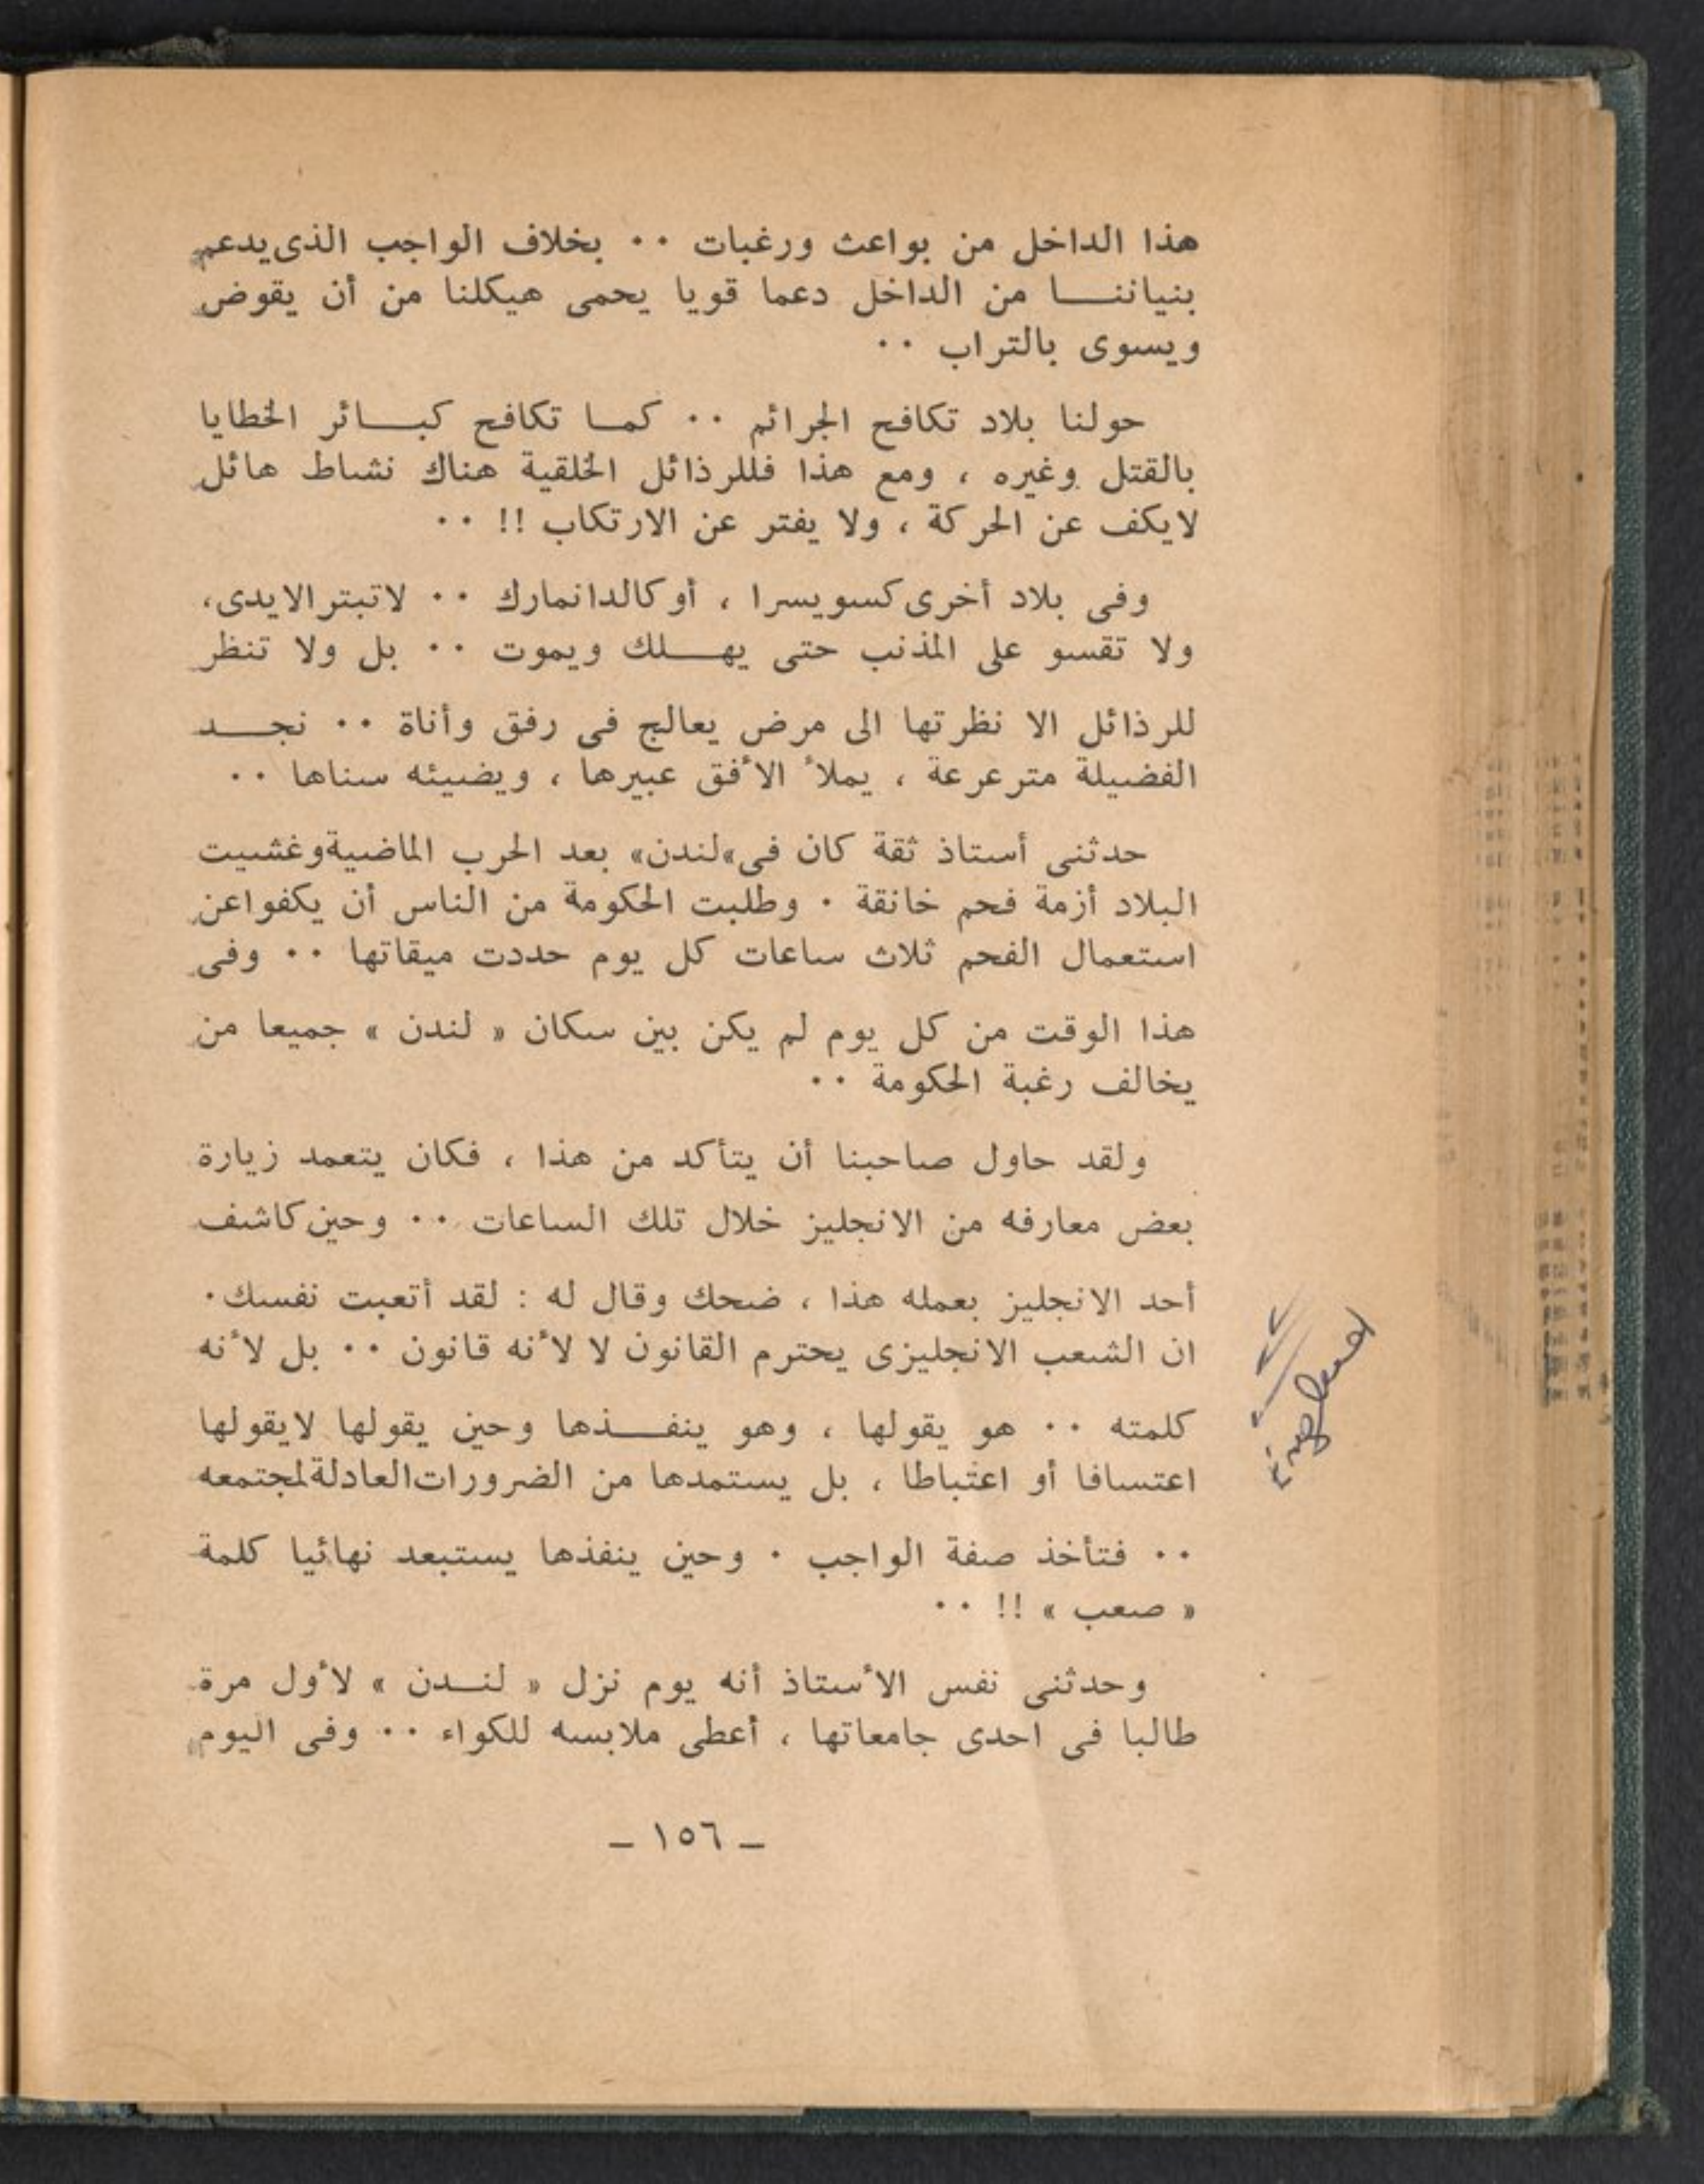 هذا الداخل من بواعث ورغبات ٠٠ بخلاف الواجب الذى يدعم
بنياننا من الداخل دعما قويا يحمى هيكلنا من أن يقوض
ويسوى بالتراب ٠٠
حولنا بلاد تكافح الجرائم ٠٠ كما تكافح كبائر الخطايا
بالقتل وغيره ، ومع هذا فللرذائل الخلقية هناك نشاط هائل
لايكف عن الحركة ، ولا يفتر عن الارتكاب !! ٠٠
وفى بلاد أخرى كسويسرا ، أو كالدانمارك ٠٠ لاتبتر الايدى،
ولا تقسو على المذنب حتى يهلك ويموت ٠٠ بل ولا تنظر
للرذائل الا نظرتها الى مرض يعالج فى رفق وأناة ٠٠ نجد
الفضيلة مترعرعة ، يملأ الأفق عبيرها ، ويضيئه سناها ٠٠
حدثنى أستاذ ثقة كان فى «لندن» بعد الحرب الماضية وغشيت
البلاد أزمة فحم خانقة ٠ وطلبت الحكومة من الناس أن يكفوا عن
استعمال الفحم ثلاث ساعات كل يوم حددت ميقاتها ٠٠ وفى
هذا الوقت من كل يوم لم يكن بين سكان « لندن » جميعا من
يخالف رغبة الحكومة ٠٠
ولقد حاول صاحبنا أن يتأكد من هذا ، فكان يتعمد زيارة
بعض معارفه من الانجليز خلال تلك الساعات ٠٠ وحين كاشف
أحد الانجليز بعمله هذا ، ضحك وقال له : لقد أتعبت نفسك٠
ان الشعب الانجليزى يحترم القانون لا لأنه قانون ٠٠ بل لأنه
كلمته ٠٠ هو يقولها ، وهو ينفذها وحين يقولها لايقولها
اعتسافا أو اعتباطا ، بل يستمدها من الضرورات العادلة لمجتمعه
٠٠ فتأخذ صفة الواجب ٠ وحين ينفذها يستبعد نهائيا كلمة
« صعب » !! ٠٠
وحدثنى نفس الأستاذ أنه يوم نزل « لندن » لأول مرة
طالبا فى احدى جامعاتها ، أعطى ملابسه للكواء ٠٠ وفى اليوم
– ١٥٦ –